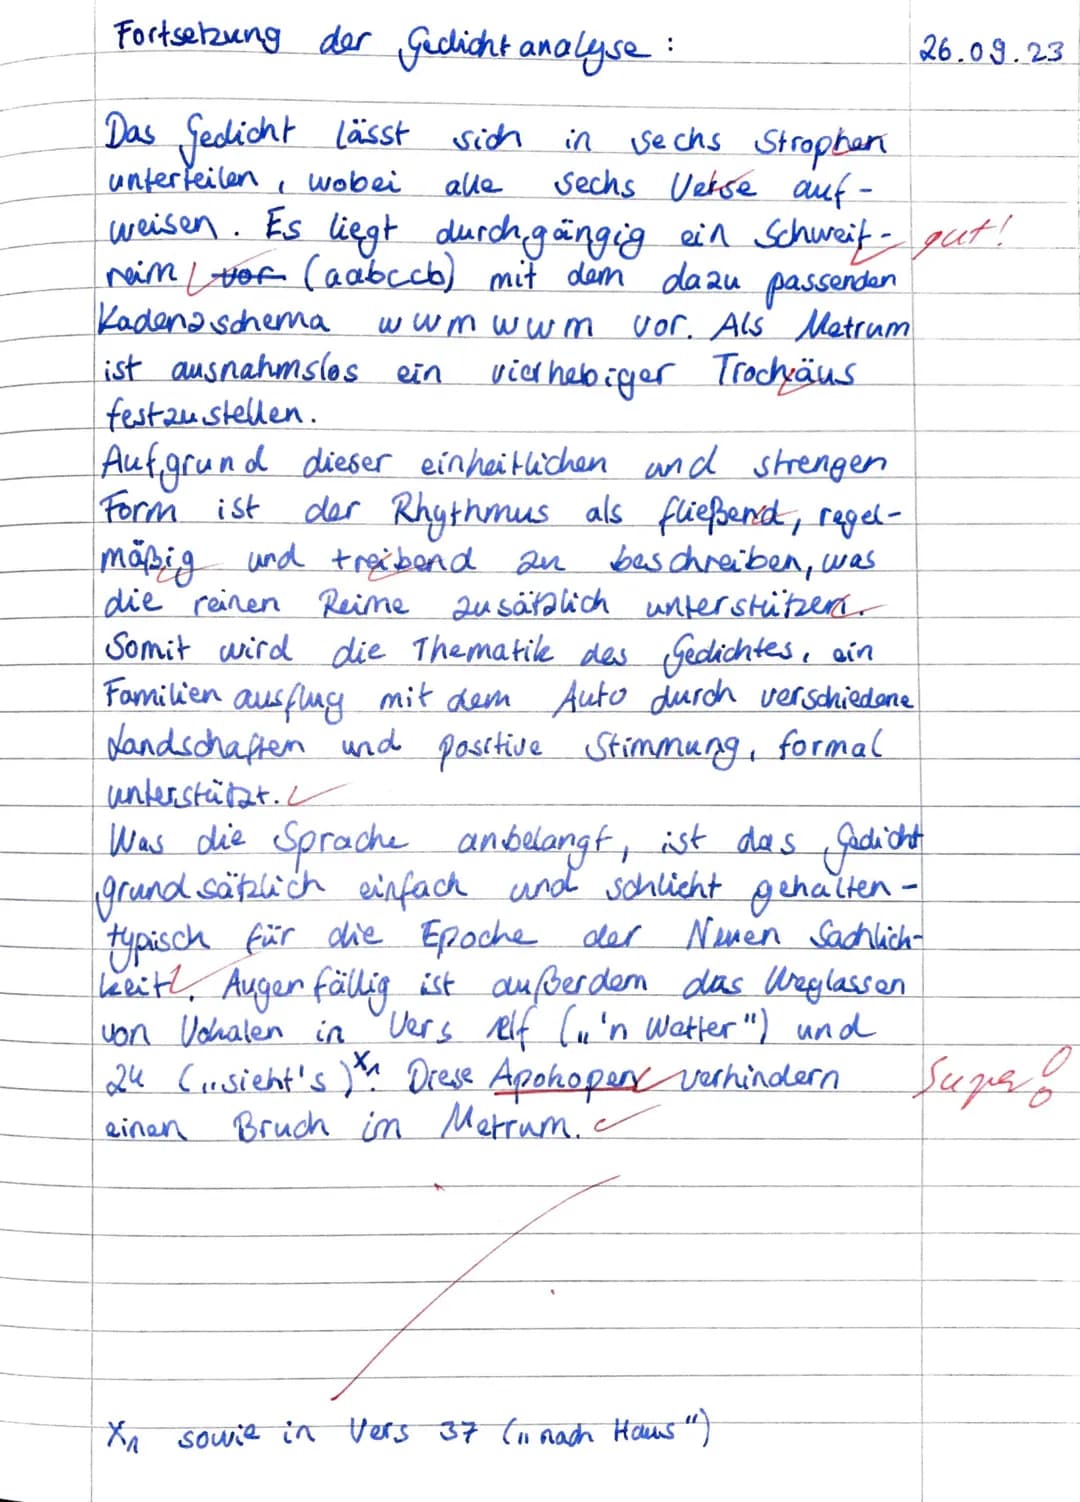 Fortsetzung der Gedichtanalyse: 26.09.23
Das Gedicht lässt sich in sechs Strophen
unterteilen, wobei alle sechs Verse auf-
weisen. Es liegt durchgängig ein Schweif- gut!
reim vor (aabccb) mit dem dazu passenden
Kadenzschema wwmwwm vor. Als Metrum
ist ausnahmslos ein vierhebiger Trochäus
festzustellen.
Aufgrund dieser einheitlichen und strengen
Form ist der Rhythmus als fließend, regel-
mäßig und treibend zu beschreiben, was
die reinen Reime zusätzlich unterstützen.
Somit wird die Thematik des Gedichtes, ein
Familienausflug mit dem Auto durch verschiedene
Landschaften und positive Stimmung, formal
unterstützt.
Was die Sprache anbelangt, ist das Gedicht
grundsätzlich einfach und schlicht gehalten -
typisch für die Epoche der Neuen Sachlich-
keit. Augenfällig ist außerdem das Weglassen
von Vokalen in Vers elf („'n Wetter") und
24 („sieht's")x1. Diese Apokopen verhindern Super!
einen Bruch im Metrum.
x1 sowie in Vers 37 („nach Haus")